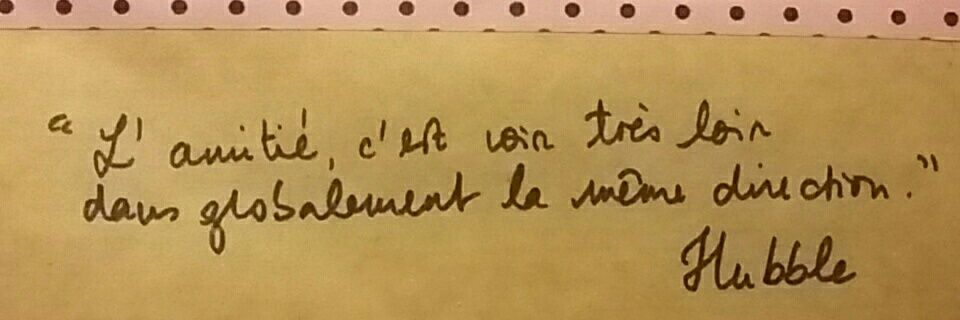 "L'amitié, c'est voir très loin
dans globalement la même direction."
Hubble